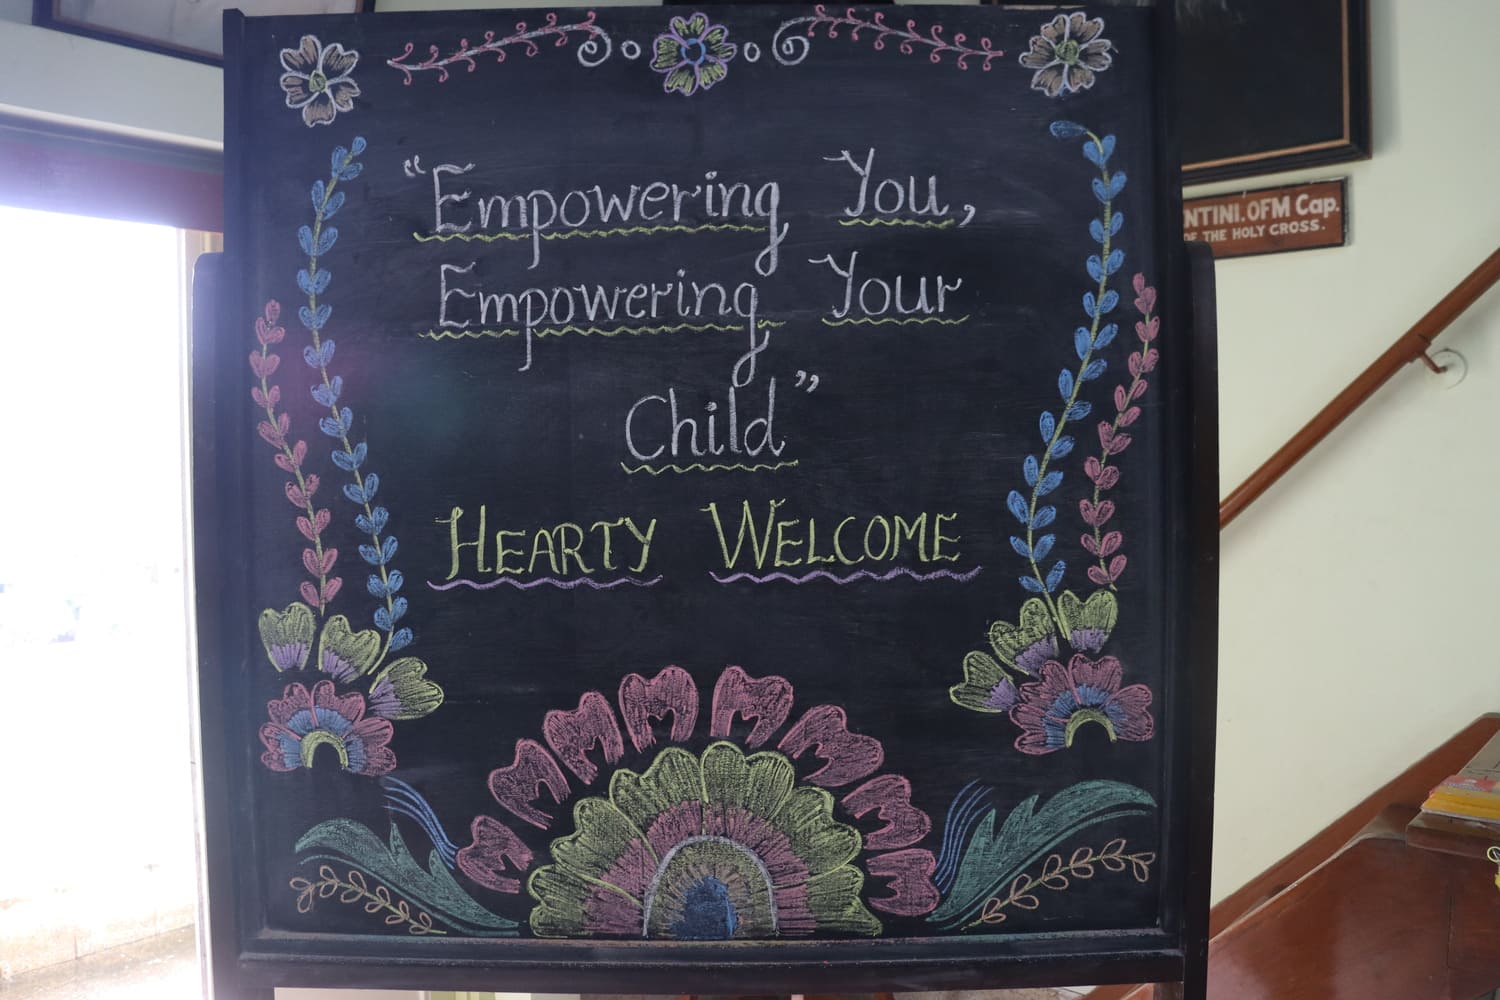 “Empowering You,
Empowering Your
Child”
HEARTY WELCOME
NTINI. OFM Cap.
THE HOLY CROSS.